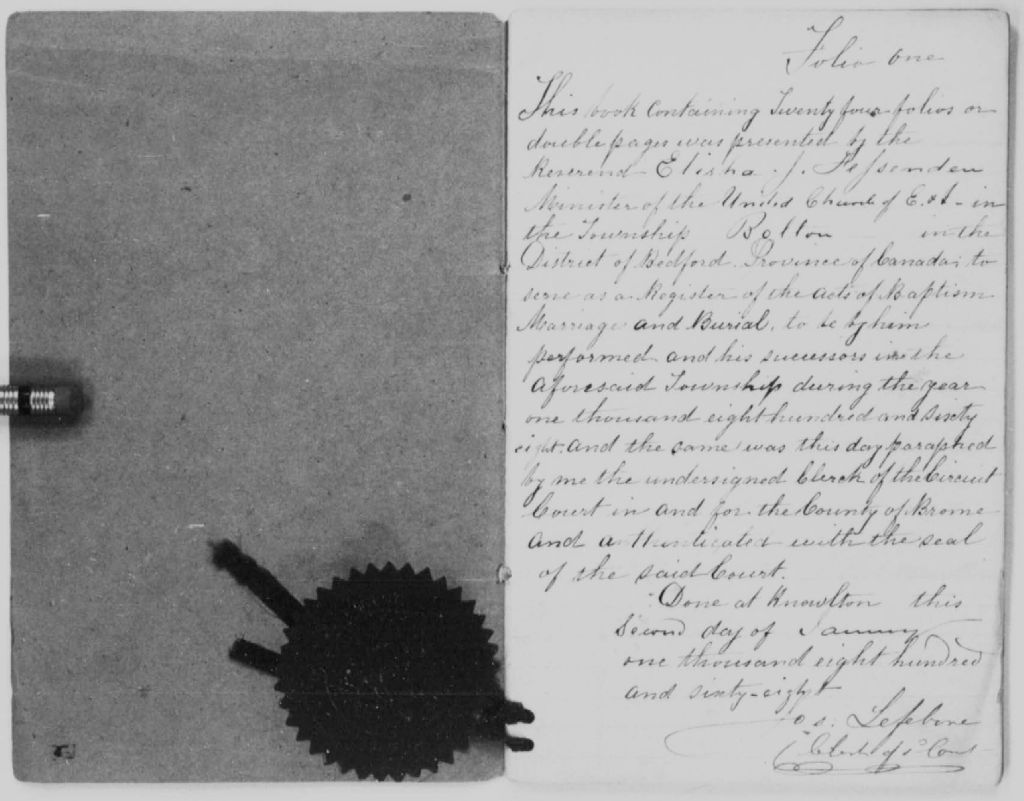 Folio one
This book containing Twenty four folios or
double pages was presented by the
Reverend Elisha J. Fessenden
Minister of the United Church of E. & I. in
the Township Bolton in the
District of Bedford Province of Canada; to
serve as a Register of the acts of Baptism
Marriage and Burial, to be by him
performed and his successors in the
aforesaid Township during the year
one thousand eight hundred and sixty
eight. and the same was this day paraphed
by me the undersigned Clerk of the Circuit
Court in and for the County of Brome
and authenticated with the seal
of the said Court.
Done at Knowlton this
Second day of January
one thousand eight hundred
and sixty-eight
Jos. Lefebvre
Clerk of sd Court